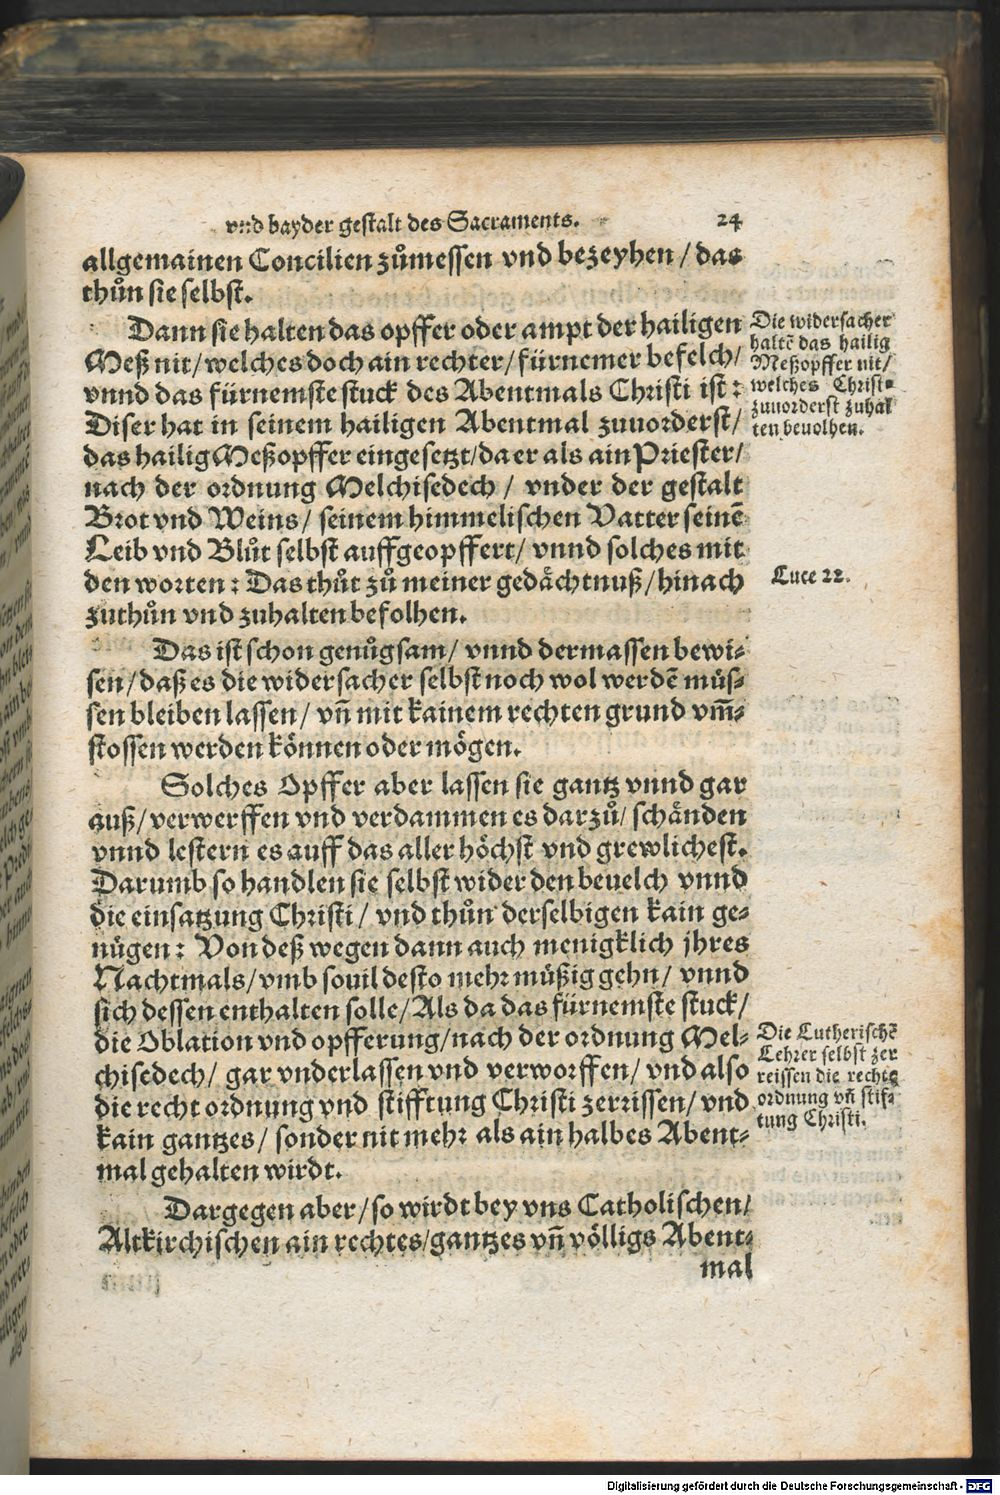 vnd bayder gestalt des Sacraments. 24
allgemainen Concilien zůmessen vnd bezeyhen / das
thůn sie selbst.
Dann sie halten das opffer oder ampt der hailigen
Meß nit / welches doch ain rechter / fürnemer befelch /
vnnd das fürnemste stuck des Abentmals Christi ist :
Diser hat in seinem hailigen Abentmal zuuorderst /
das hailig Meßopffer eingesetzt / da er als ain Priester /
nach der ordnung Melchisedech / vnder der gestalt
Brot vnd Weins / seinem himmelischen Vatter seinē
Leib vnd Blůt selbst auffgeopffert / vnnd solches mit
den worten : Das thůt zů meiner gedächtnuß / hinach
zuthůn vnd zuhalten befolhen.
Das ist schon genůgsam / vnnd dermassen bewi-
sen / daß es die widersacher selbst noch wol werdē müs-
sen bleiben lassen / vñ mit kainem rechten grund vm̃-
stossen werden können oder mögen.
Solches Opffer aber lassen sie gantz vnnd gar
auß / verwerffen vnd verdammen es darzů / schänden
vnnd lestern es auff das aller höchst vnd grewlichest.
Darumb so handlen sie selbst wider den beuelch vnnd
die einsatzung Christi / vnd thůn derselbigen kain ge-
nůgen : Von deß wegen dann auch menigklich jhres
Nachtmals / vmb souil desto mehr müßig gehn / vnnd
sich dessen enthalten solle / Als da das fürnemste stuck /
die Oblation vnd opfferung / nach der ordnung Mel-
chisedech / gar vnderlassen vnd verworffen / vnd also
die recht ordnung vnd stifftung Christi zerrissen / vnd
kain gantzes / sonder nit mehr als ain halbes Abent-
mal gehalten wirdt.
Dargegen aber / so wirdt bey vns Catholischen /
Altkirchischen ain rechtes / gantzes vñ völligs Abent-
mal
Die widersacher
haltē das hailig
Meßopffer nit /
welches Christ-
zuuorderst zuhal
ten beuolhen.
Luce 22.
Die Lutherischē
Lehrer selbst zer
reissen die rechte
ordnung vñ stif-
tung Christi.
Digitalisierung gefördert durch die Deutsche Forschungsgemeinschaft - DFG